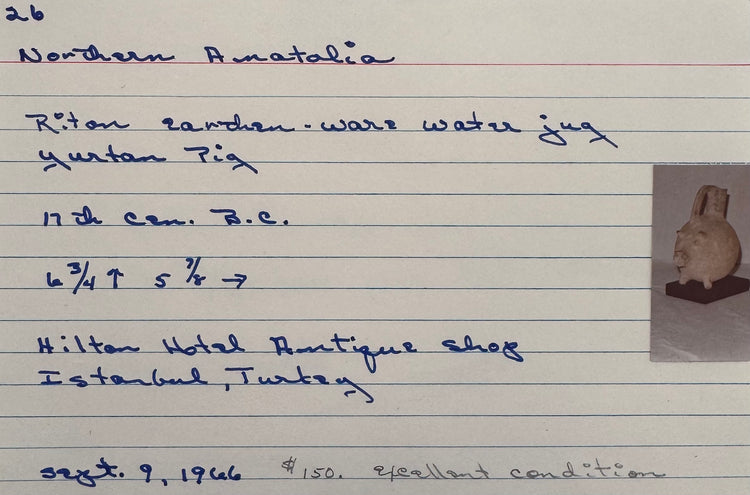 26
Northern Anatalia
Riton earthen-ware water jug
yurtan Pig
17th cen. B.C.
6 3/4 ↑ 5 7/8 →
Hilton Hotel Antique shop
Istanbul, Turkey
sept. 9, 1966 $150. excellant condition